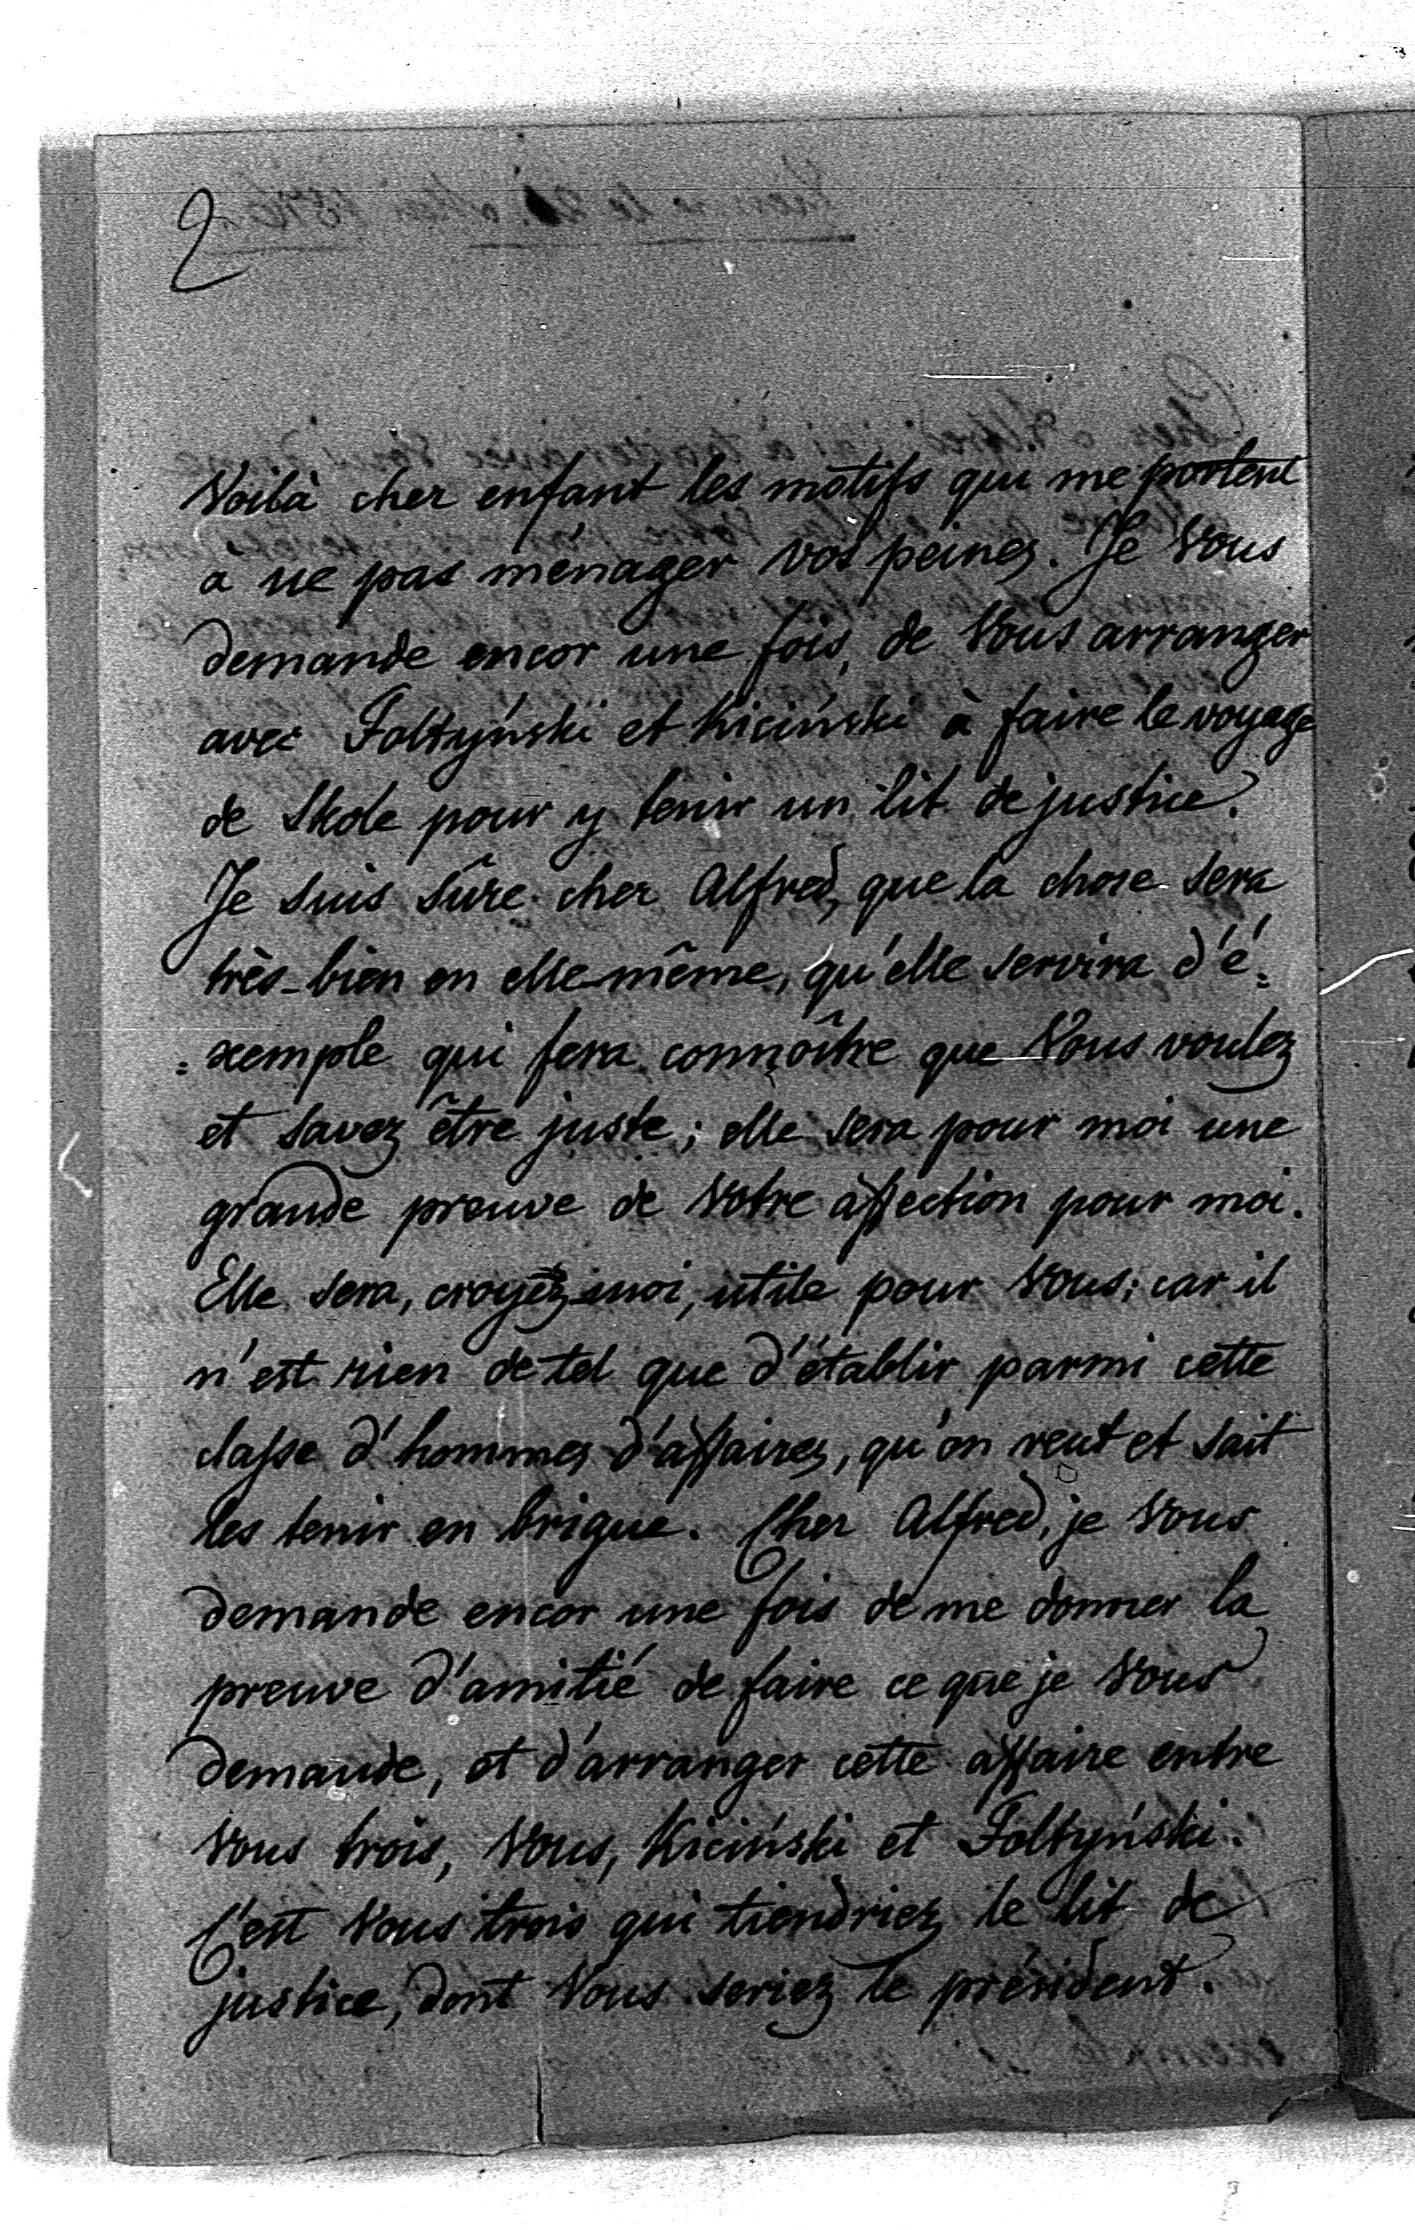 2
Voilà cher enfant les motifs qui me portent
a ne pas ménager vos peines. Je Vous
demande encor une fois, de Vous arranger
avec Foltyński et Kiciński à faire le voyage
de Skole pour y tenir un lit de justice.
Je suis sûre cher Alfred, que la chose sera
très-bien en elle-même, qu'elle servira d'é=
=xemple qui fera connoître que Vous voulez
et savez être juste; elle sera pour moi une
grande preuve de Votre affection pour moi.
Elle sera, croyez-moi, utile pour Vous; car il
n'est rien de tel que d'établir parmi cette
classe d'hommes d'affaires, qu'on veut et sait
les tenir en brigue. Cher Alfred, je Vous
demande encor une fois de me donner la
preuve d'amitié de faire ce que je Vous
demande, et d'arranger cette affaire entre
Vous trois, Vous, Kiciński et Foltyński.
C'est Vous trois qui tiendriez le lit de
justice, dont Vous seriez le président.